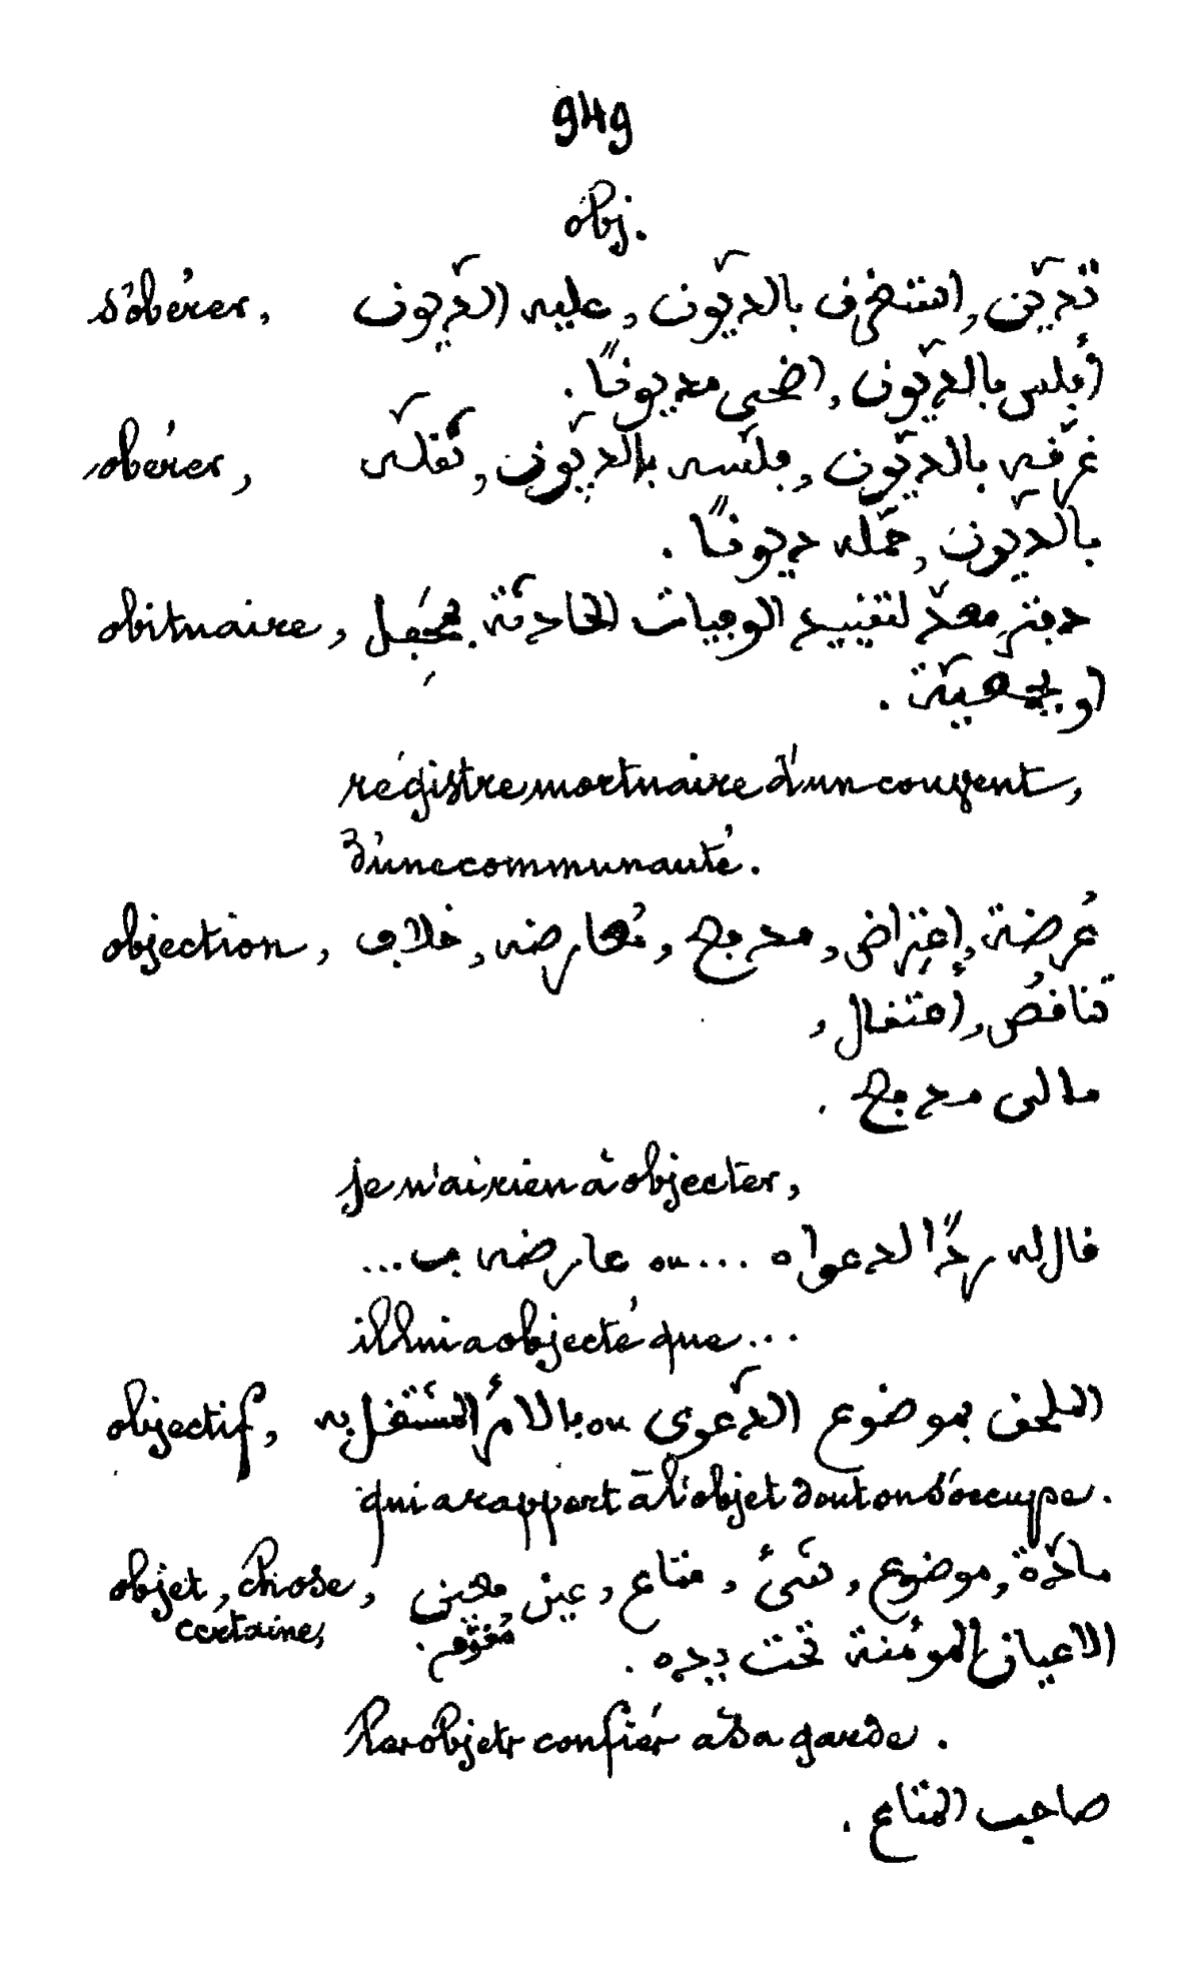 949
obj.
s'obérer, تديّن, استغرف بالديّون, عليه الديّون
أفلس بالديّون, اضحى مديونًا.
obérer, غرّفه بالديّون, فلّسه بالديّون, ثقله
بالديّون, حمّله ديونًا.
obituaire, دفتر معدّ لتقييد الوفيات الحادثة بمحفل
او بجمعيّة.
régistre mortuaire d'un couvent,
d'une communauté.
objection, عُرضة, إعتراض, مدفع, مُعارضه, خلاف
تناقضُ,
ما لى مدفع.
je n'ai rien à objecter,
قال له ردًّا لدعواه ... ou عارضه ب...
il lui a objecté que...
objectif, بموضوع الدّعوى ou بالامر المشتغل به
qui a rapport à l'objet dont on s'occupe.
objet, chose, مادّة, موضوع, شئ, متاع, عين معين
certaine, مُقوّم.
الاعيان المؤمنة تحت يده.
Les objets confiés à sa garde.
صاحب المتاع.